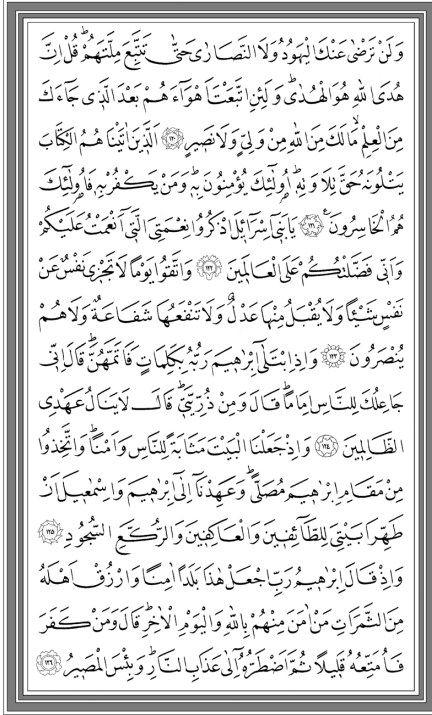 وَلَنْ تَرْضٰى عَنْكَ الْيَهُودُ وَلَا النَّصَارٰى حَتّٰى تَتَّبِعَ مِلَّتَهُمْۜ قُلْ اِنَّ
هُدَى اللّٰهِ هُوَ الْهُدٰىۜ وَلَئِنِ اتَّبَعْتَ اَهْوَٓاءَهُمْ بَعْدَ الَّذٖى جَٓاءَكَ
مِنَ الْعِلْمِۙ مَا لَكَ مِنَ اللّٰهِ مِنْ وَلِىٍّ وَلَا نَصٖيرٍ ﴿١٢٠﴾ اَلَّذٖينَ اٰتَيْنَاهُمُ الْكِتَابَ
يَتْلُونَهُ حَقَّ تِلَاوَتِهٖۜ اُولٰٓئِكَ يُؤْمِنُونَ بِهٖۜ وَمَنْ يَكْفُرْ بِهٖ فَاُولٰٓئِكَ
هُمُ الْخَاسِرُونَ۟ ﴿١٢١﴾ يَا بَنٖٓى اِسْرَٓائٖلَ اذْكُرُوا نِعْمَتِىَ الَّتٖٓى اَنْعَمْتُ عَلَيْكُمْ
وَاَنّٖى فَضَّلْتُكُمْ عَلَى الْعَالَمٖينَ ﴿١٢٢﴾ وَاتَّقُوا يَوْمًا لَا تَجْزٖى نَفْسٌ عَنْ
نَفْسٍ شَيْـًٔا وَلَا يُقْبَلُ مِنْهَا عَدْلٌ وَلَا تَنْفَعُهَا شَفَاعَةٌ وَلَا هُمْ
يُنْصَرُونَ ﴿١٢٣﴾ وَاِذِ ابْتَلٰٓى اِبْرٰهٖيمَ رَبُّهُ بِكَلِمَاتٍ فَاَتَمَّهُنَّۜ قَالَ اِنّٖى
جَاعِلُكَ لِلنَّاسِ اِمَامًاۜ قَالَ وَمِنْ ذُرِّيَّتٖىۜ قَالَ لَا يَنَالُ عَهْدِى
الظَّالِمٖينَ ﴿١٢٤﴾ وَاِذْ جَعَلْنَا الْبَيْتَ مَثَابَةً لِلنَّاسِ وَاَمْنًاۜ وَاتَّخِذُوا
مِنْ مَقَامِ اِبْرٰهٖيمَ مُصَلًّىۜ وَعَهِدْنَٓا اِلٰٓى اِبْرٰهٖيمَ وَاِسْمٰعٖيلَ اَنْ
طَهِّرَا بَيْتِىَ لِلطَّٓائِفٖينَ وَالْعَاكِفٖينَ وَالرُّكَّعِ السُّجُودِ ﴿١٢٥﴾
وَاِذْ قَالَ اِبْرٰهٖيمُ رَبِّ اجْعَلْ هٰذَا بَلَدًا اٰمِنًا وَارْزُقْ اَهْلَهُ
مِنَ الثَّمَرَاتِ مَنْ اٰمَنَ مِنْهُمْ بِاللّٰهِ وَالْيَوْمِ الْاٰخِرِۜ قَالَ وَمَنْ كَفَرَ
فَاُمَتِّعُهُ قَلٖيلًا ثُمَّ اَضْطَرُّهُٓ اِلٰى عَذَابِ النَّارِۜ وَبِئْسَ الْمَصٖيرُ ﴿١٢٦﴾